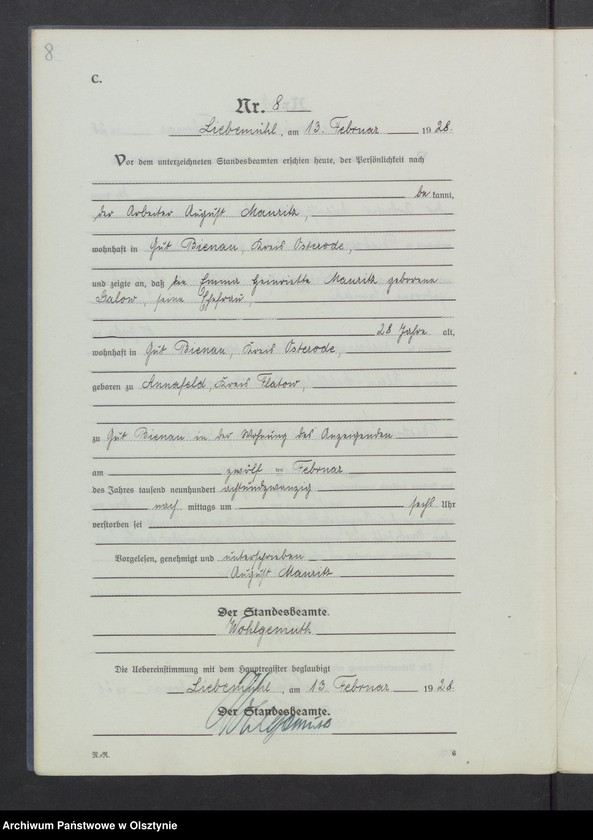 8
C.
Nr. 8
Liebemühl, am 13. Februar 1928.
Vor dem unterzeichneten Standesbeamten erschien heute, der Persönlichkeit nach
be kannt,
der Arbeiter August Mauritz,
wohnhaft in Gut Bienau, Kreis Osterode,
und zeigte an, daß die Emma Henriette Mauritz geborene
Galow, seine Ehefrau,
28 Jahre alt,
wohnhaft in Gut Bienau, Kreis Osterode,
geboren zu Annafeld, Kreis Flatow,
zu Gut Bienau in der Wohnung des Anzeigenden
am zwölf ten Februar
des Jahres tausend neunhundert achtundzwanzig
nach mittags um sechs Uhr
verstorben sei
Vorgelesen, genehmigt und unterschrieben
August Mauritz
Der Standesbeamte.
Wohlgemuth
Die Uebereinstimmung mit dem Hauptregister beglaubigt
Liebemühl, am 13. Februar 1928.
Der Standesbeamte.
Wohlgemuth
R.-R.
6
Archiwum Państwowe w Olsztynie